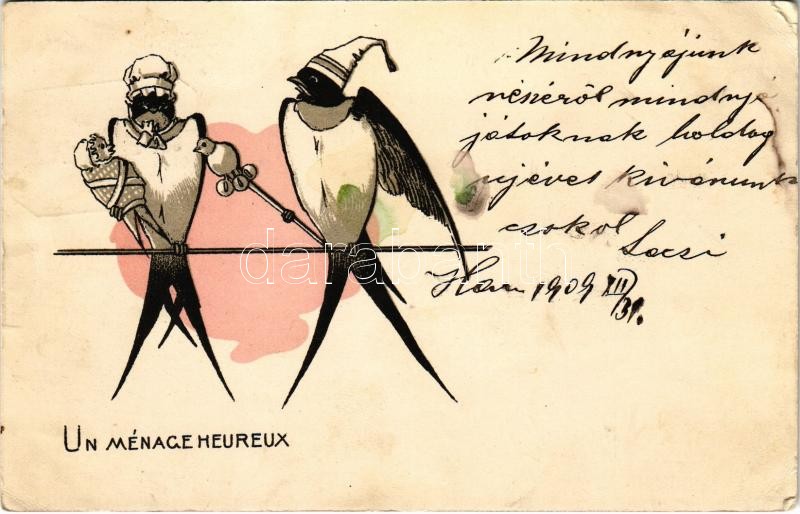 Mindnyájunk
részéről mindnyá
játoknak boldog
ujévet kivánunk
csokol Lacsi
1909 XII/31.
darabanth
UN MÉNAGE HEUREUX